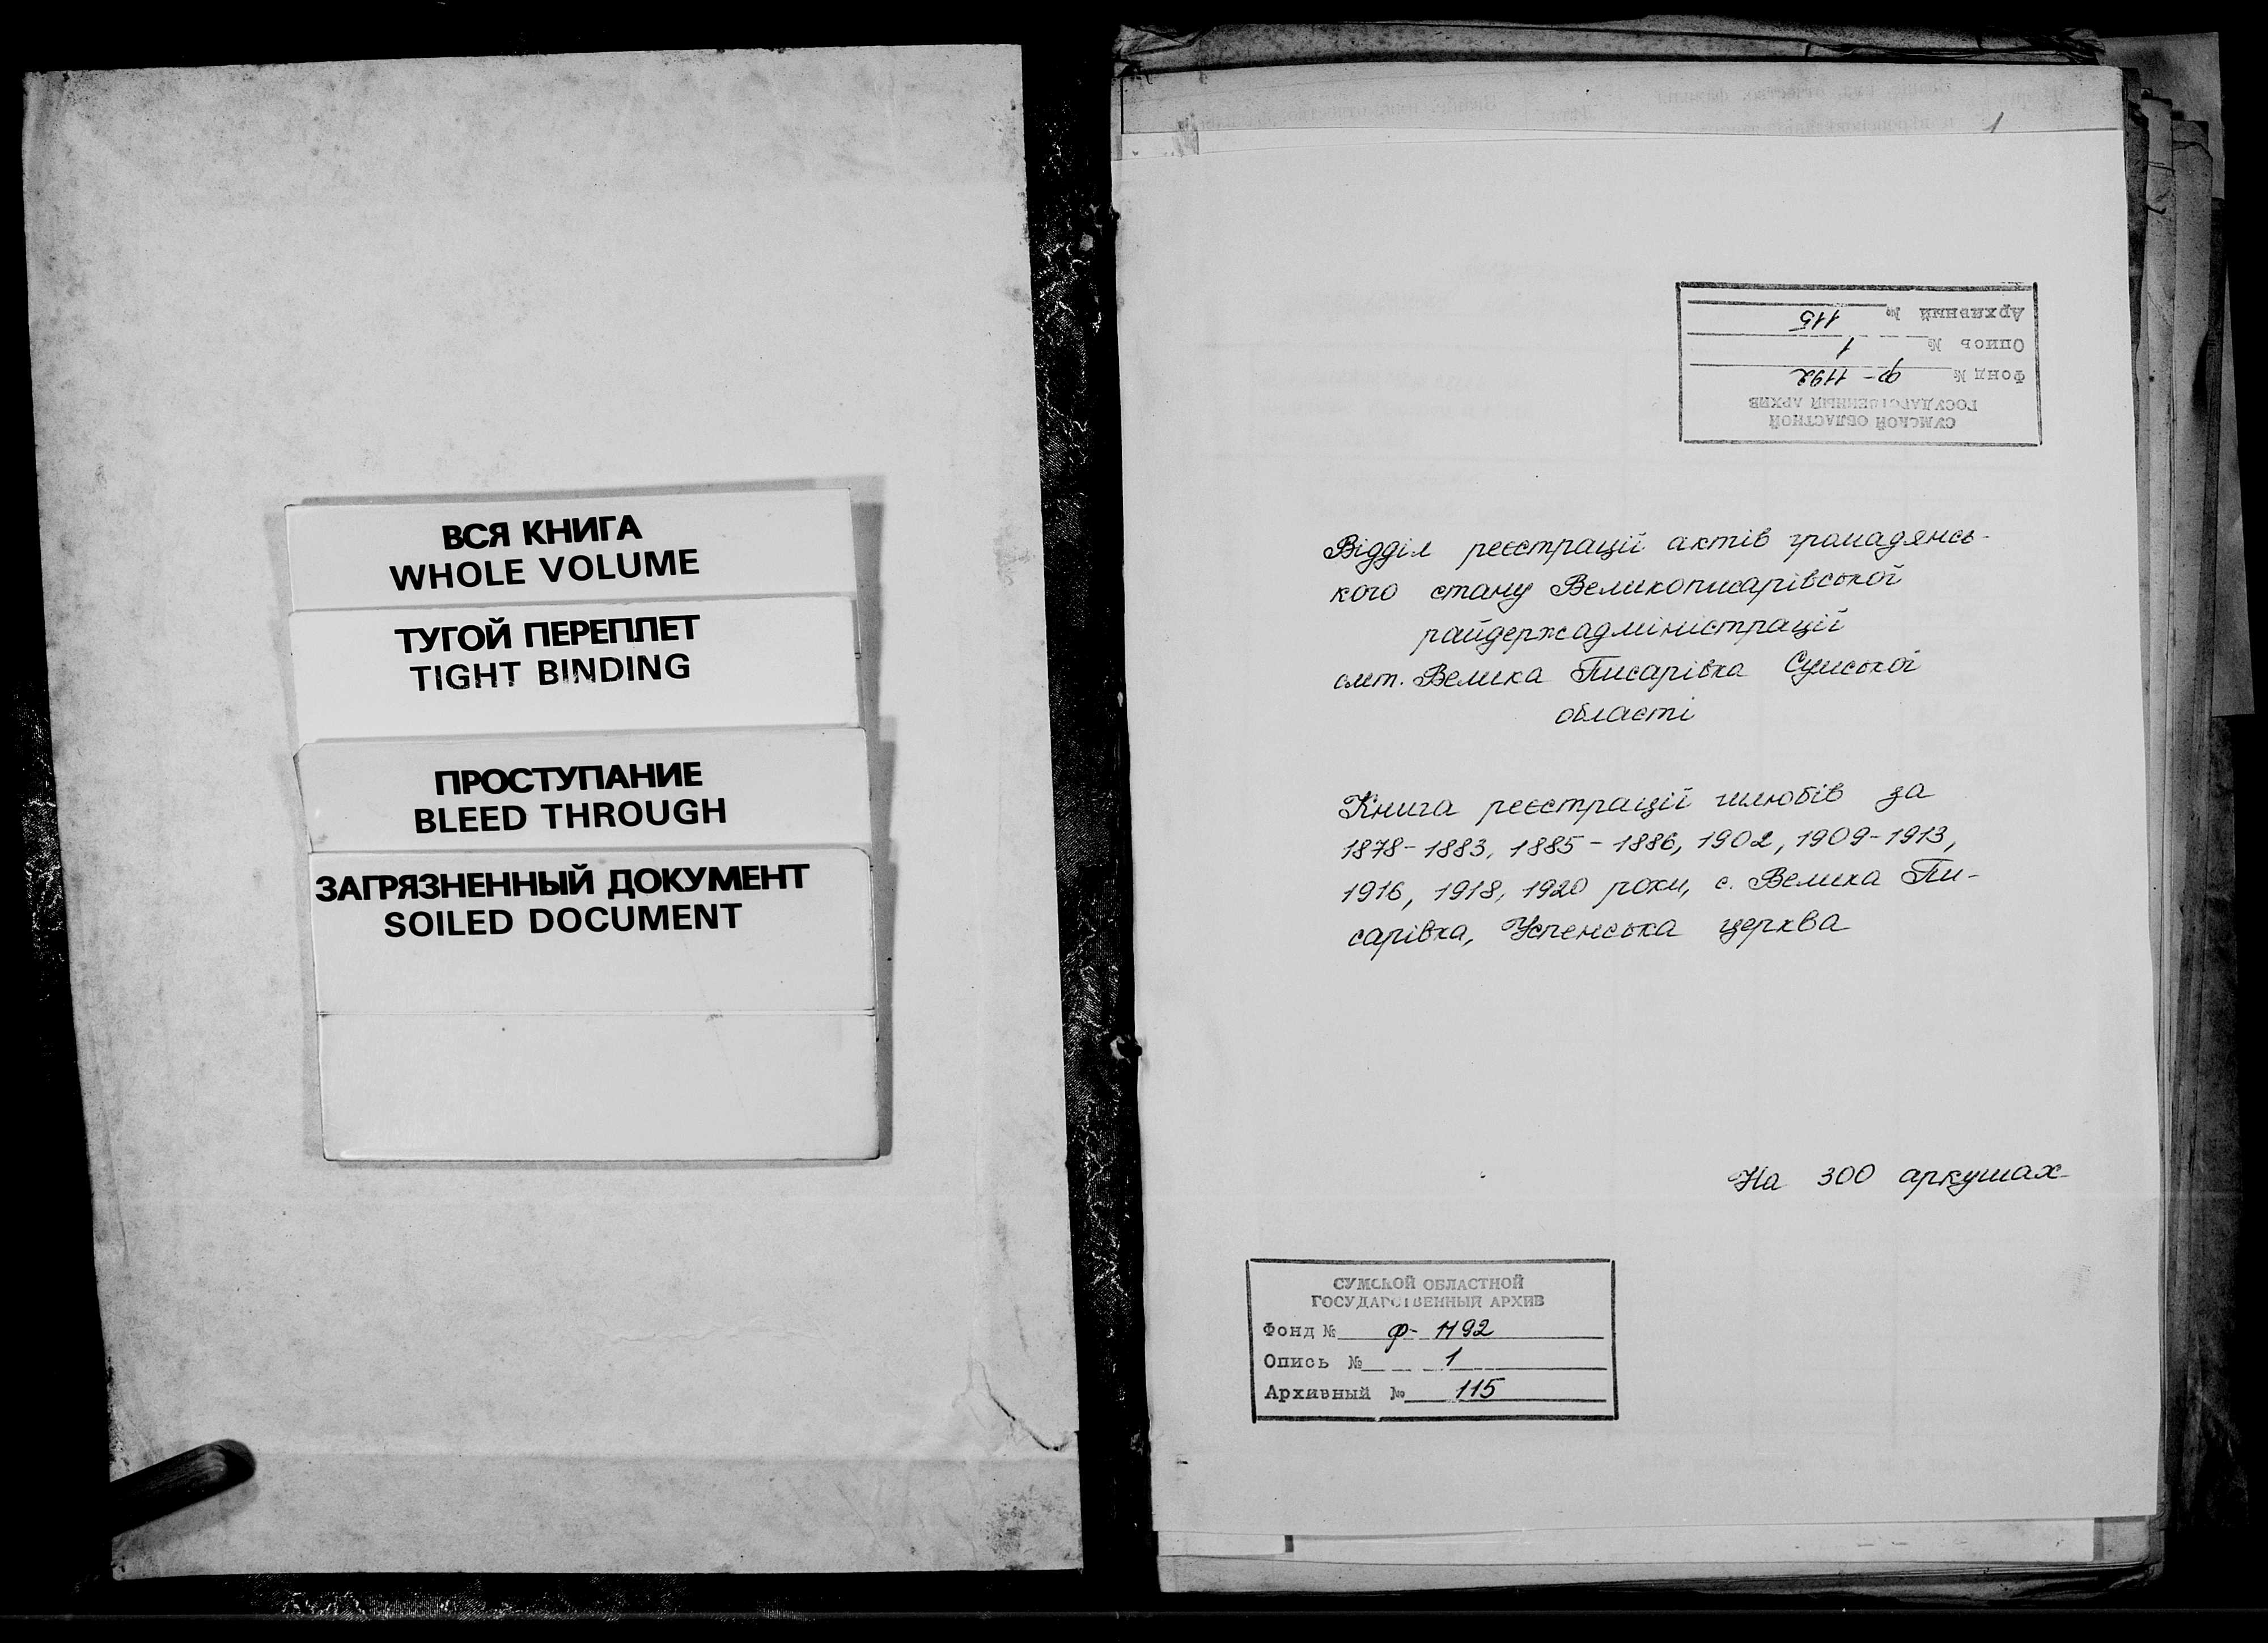 ВСЯ КНИГА
WHOLE VOLUME
ТУГОЙ ПЕРЕПЛЕТ
TIGHT BINDING
ПРОСТУПАНИЕ
BLEED THROUGH
ЗАГРЯЗНЕННЫЙ ДОКУМЕНТ
SOILED DOCUMENT
1
СУМСКОЙ ОБЛАСТНОЙ
ГОСУДАРСТВЕННЫЙ АРХИВ
Фонд № ф-1192
Опись № 1
Архивный № 115
Відділ реєстрації актів громадянсь-
кого стану Великописарівської
райдержадміністрації
смт. Велика Писарівка Сумської
області
Книга реєстрації шлюбів за
1878-1883, 1885-1886, 1902, 1909-1913,
1916, 1918, 1920 роки, с. Велика Пи-
сарівка, Успенська церква
На 300 аркушах
СУМСКОЙ ОБЛАСТНОЙ
ГОСУДАРСТВЕННЫЙ АРХИВ
Фонд № ф-1192
Опись № 1
Архивный № 115